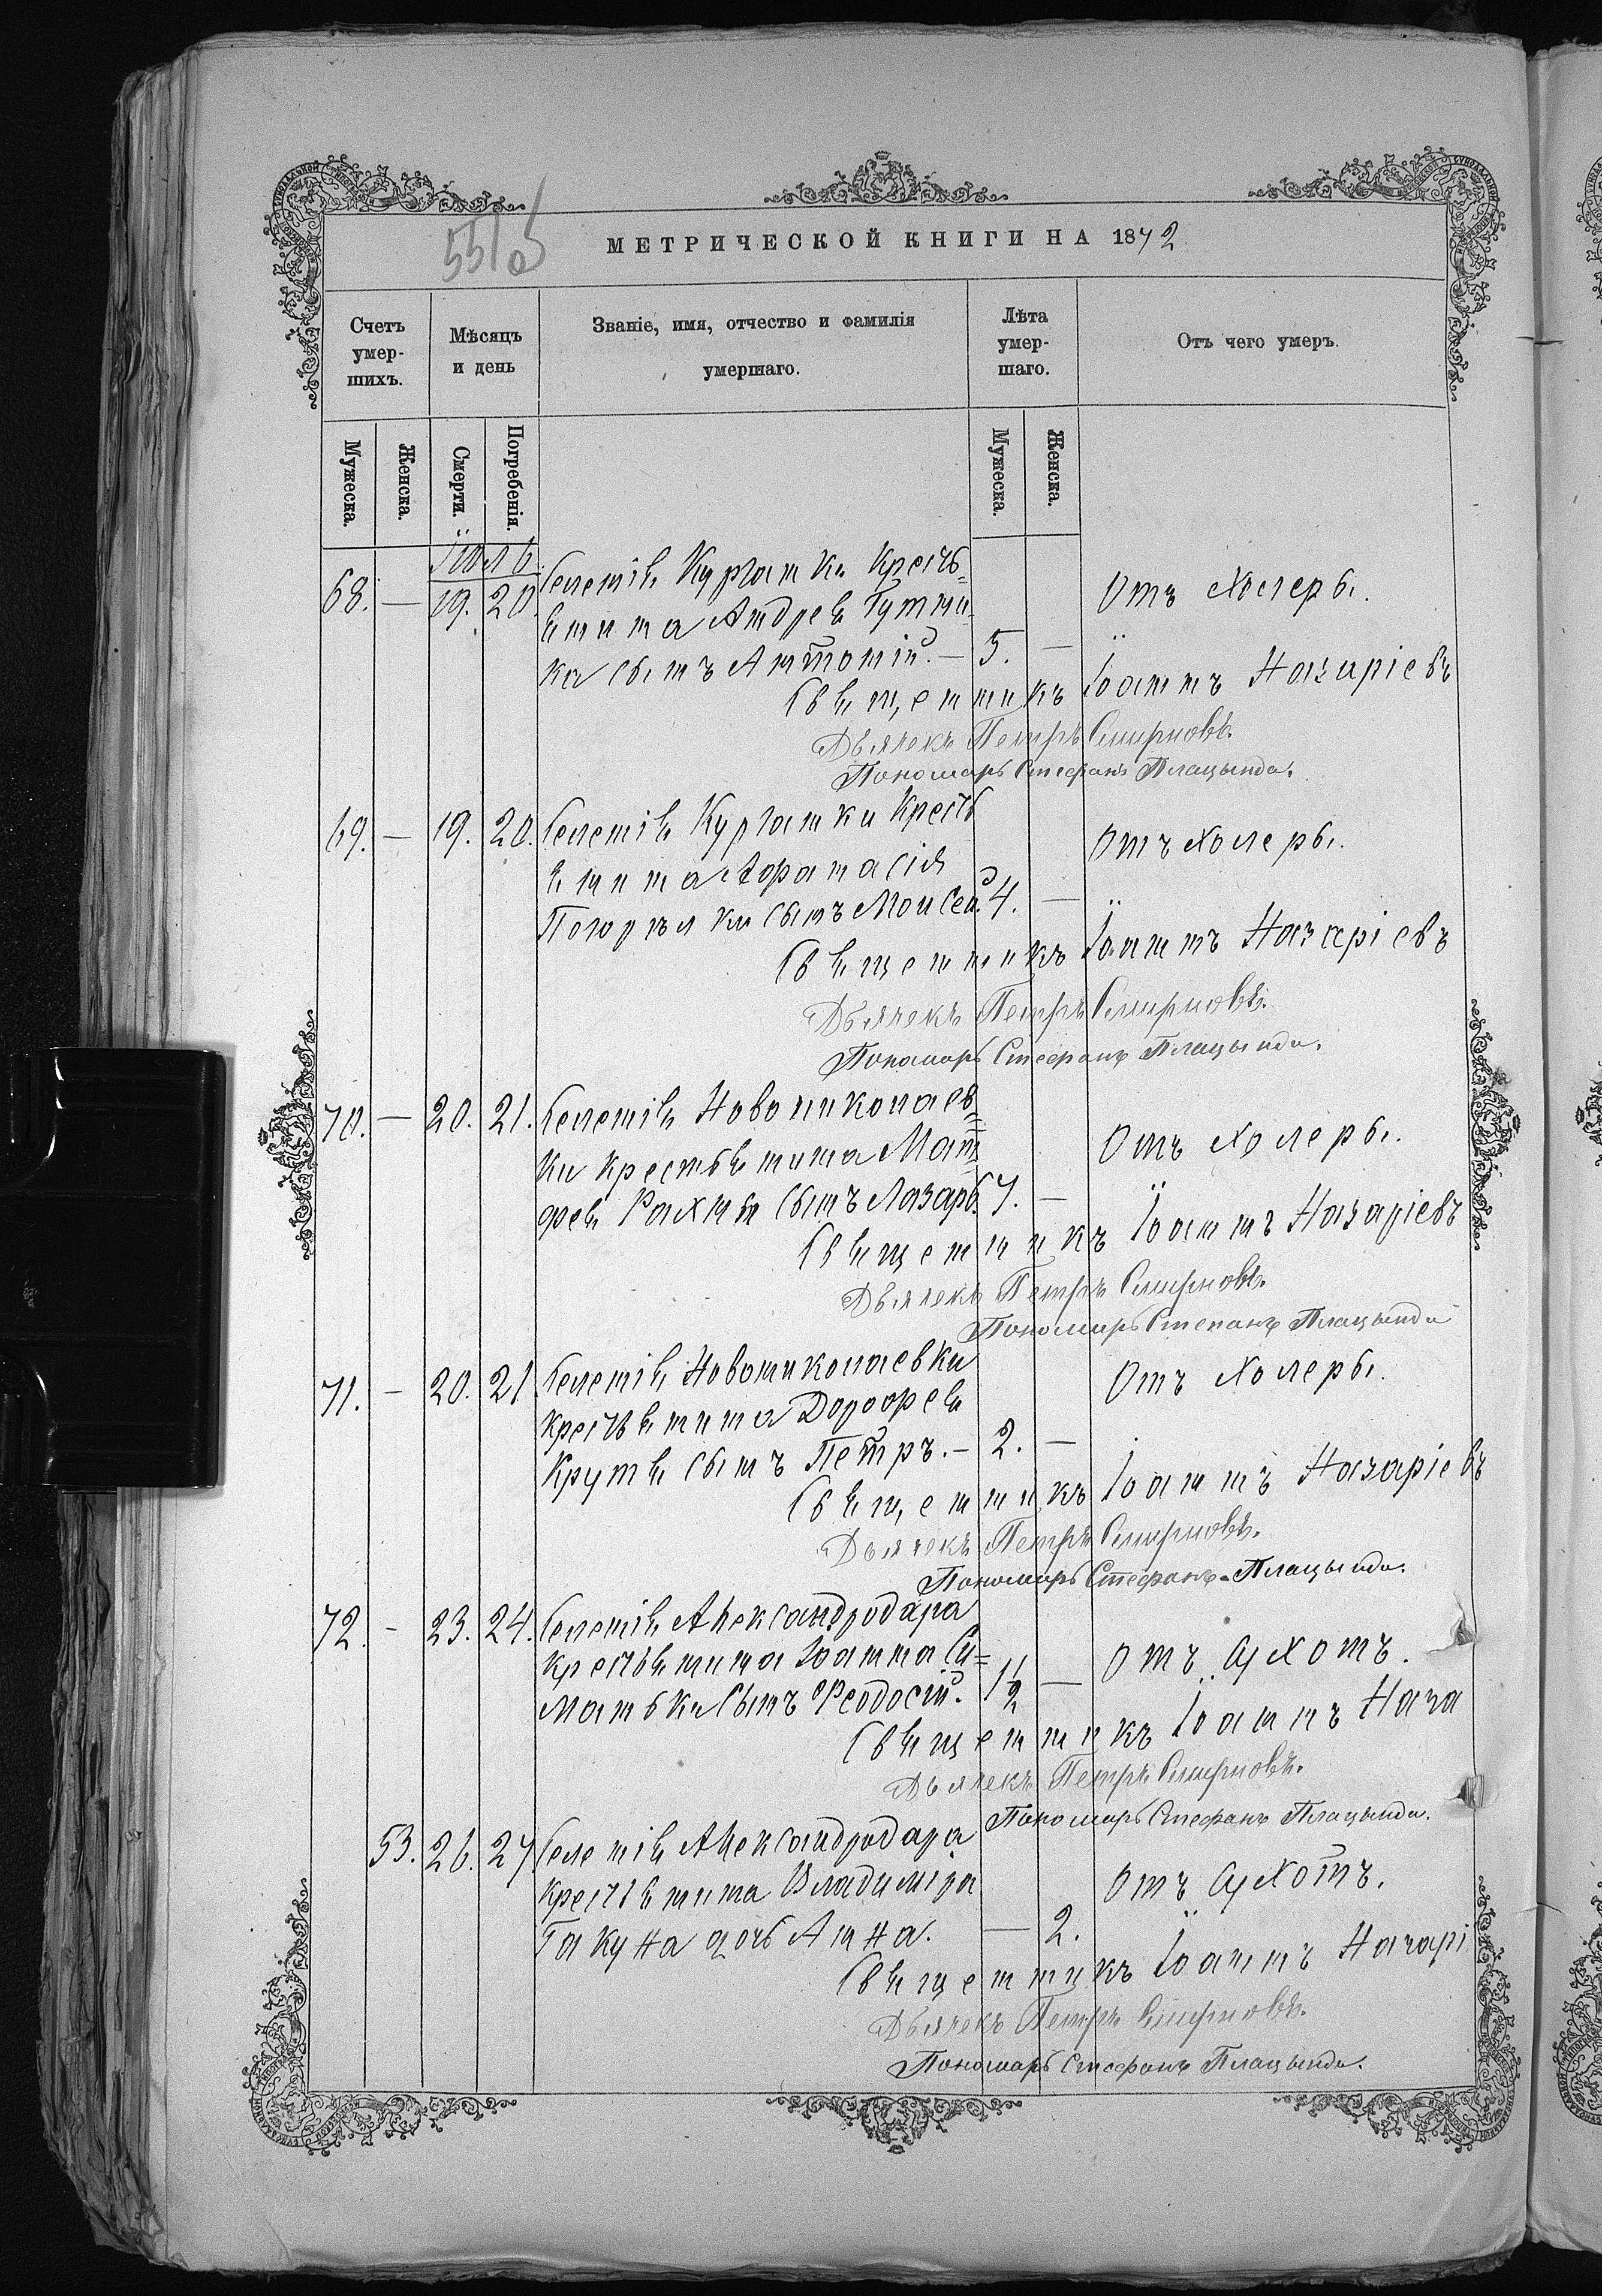 МЕТРИЧЕСКОЙ КНИГИ НА 1872
Счетъ умер-шихъ.
Мѣсяцъ и день
Званіе, имя, отчество и фамилія умершаго.
Лѣта умер-шаго.
Отъ чего умеръ.
Мужеска. Женска. Смерти. Погребенія. Мужеска. Женска.
Іюль
68. — 19. 20. Селенія Курганки Кресть=
янина Андрея Гутни- Отъ Холеры.
ка сынъ Антоній. — 5. —
Священникъ Іоаннъ Назаріевъ
Дьячекъ Петръ Смирновъ.
Пономарь Стефанъ Плацында.
69. — 19. 20. Селенія Курганки Кресть
янина Афанасія Отъ Холеры.
Погорѣлки сынъ Моисей. 4. —
Священникъ Іоаннъ Назаріевъ
Дьячекъ Петръ Смирновъ.
Пономарь Стефанъ Плацында.
70. — 20. 21. Селенія Новониколаев=
ки крестьянина Мат= Отъ Холеры.
фея Рахты сынъ Лазарь. 7. —
Священникъ Іоаннъ Назаріевъ
Дьячекъ Петръ Смирновъ.
Пономарь Степанъ Плацында
71. — 20. 21 Селенія Новониколаевки
Крестьянина Дорофея Отъ Холеры.
Крутя сынъ Петръ. — 2. —
Священникъ Іоаннъ Назаріевъ
Дьячекъ Петръ Смирновъ.
Пономарь Стефанъ Плацында.
72. - 23. 24. Селенія Александродара
крестьянина Іоанна Си= отъ сухотъ.
маньки сынъ Феодосій. 1 1/2 —
Священникъ Іоаннъ Наза
Дьячекъ Петръ Смирновъ.
Пономарь Стефанъ Плацында.
53. 26. 27 Селенія Александродара
крестьянина Владиміра Отъ сухотъ.
Гакуна дочь Анна. — 2.
Священникъ Іоаннъ Назарі
Дьячекъ Петръ Смирновъ.
Пономарь Стефанъ Плацында.